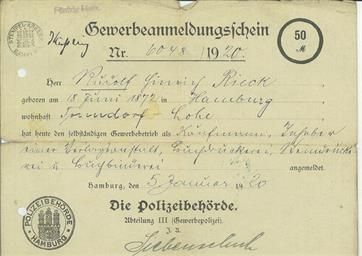 Gewerbeanmeldungsschein
50
M
Nr. 6048/1920.
Herr Rudolf Hinrich Rieck
geboren am 18 Juni 1872 in Hamburg
wohnhaft Lohe
hat heute den selbständigen Gewerbebetrieb als Kaufmann, Inhaber
einer Verlagsanstalt, Buchdruckerei, Steindrucke-
rei u. Buchbinderei angemeldet.
Hamburg, den 5 Januar 1920
Die Polizeibehörde.
Abteilung III (Gewerbepolizei).
J. A.
POLIZEIBEHÖRDE
HAMBURG